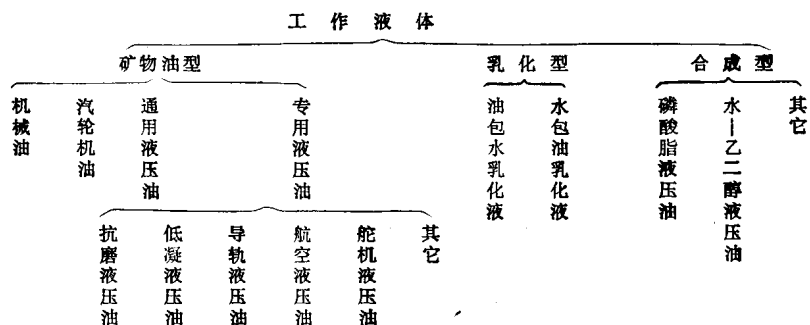 工作液体
矿物油型
乳化型
合成型
机械油
汽轮机油
通用液压油
专用液压油
油包水乳化液
水包油乳化液
磷酸脂液压油
水—乙二醇液压油
其它
抗磨液压油
低凝液压油
导轨液压油
航空液压油
舵机液压油
其它